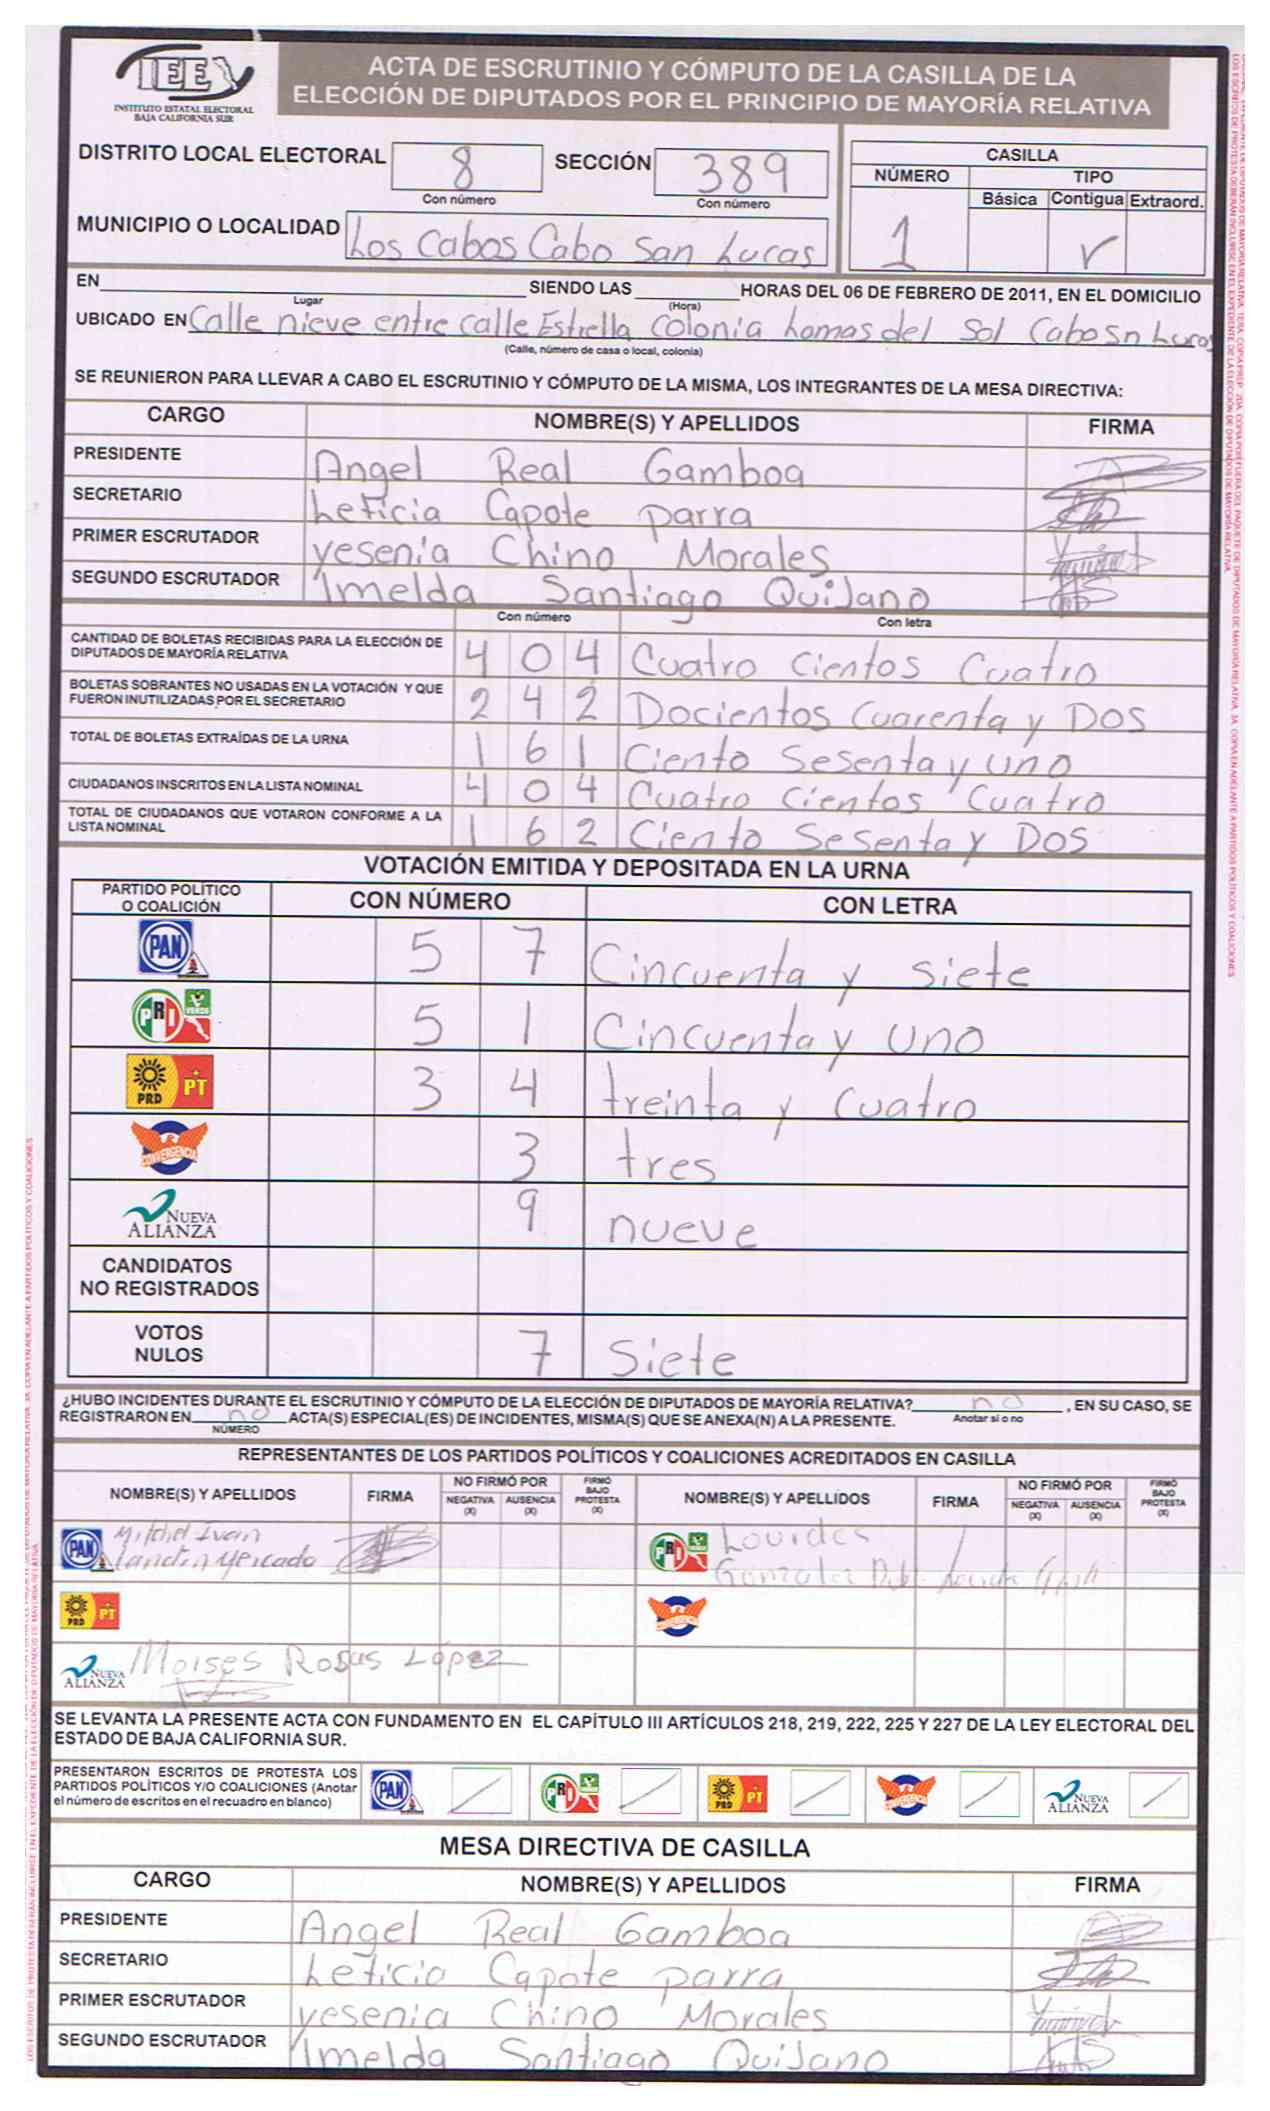 IEE
INSTITUTO ESTATAL ELECTORAL
BAJA CALIFORNIA SUR
ACTA DE ESCRUTINIO Y CÓMPUTO DE LA CASILLA DE LA
ELECCIÓN DE DIPUTADOS POR EL PRINCIPIO DE MAYORÍA RELATIVA
DISTRITO LOCAL ELECTORAL 8 SECCIÓN 389
Con número Con número
CASILLA
NÚMERO TIPO
Básica Contigua Extraord.
1 √
MUNICIPIO O LOCALIDAD Los Cabos Cabo San Lucas
EN SIENDO LAS HORAS DEL 06 DE FEBRERO DE 2011, EN EL DOMICILIO
Lugar (Hora)
UBICADO EN Calle nieve entre calle Estrella Colonia Lomas del Sol Cabo Sn Lucas
(Calle, número de casa o local, colonia)
SE REUNIERON PARA LLEVAR A CABO EL ESCRUTINIO Y CÓMPUTO DE LA MISMA, LOS INTEGRANTES DE LA MESA DIRECTIVA:
CARGO NOMBRE(S) Y APELLIDOS FIRMA
PRESIDENTE Angel Real Gamboa
SECRETARIO Leticia Capote parra
PRIMER ESCRUTADOR yesenia Chino Morales
SEGUNDO ESCRUTADOR Imelda Santiago Quijano
Con número Con letra
CANTIDAD DE BOLETAS RECIBIDAS PARA LA ELECCIÓN DE
DIPUTADOS DE MAYORÍA RELATIVA 4 0 4 Cuatro Cientos Cuatro
BOLETAS SOBRANTES NO USADAS EN LA VOTACIÓN Y QUE
FUERON INUTILIZADAS POR EL SECRETARIO 2 4 2 Docientos Cuarenta y DOS
TOTAL DE BOLETAS EXTRAÍDAS DE LA URNA 1 6 1 Ciento Sesenta y uno
CIUDADANOS INSCRITOS EN LA LISTA NOMINAL 4 0 4 Cuatro Cientos Cuatro
TOTAL DE CIUDADANOS QUE VOTARON CONFORME A LA
LISTA NOMINAL 1 6 2 Ciento Sesenta y DOS
VOTACIÓN EMITIDA Y DEPOSITADA EN LA URNA
PARTIDO POLÍTICO
O COALICIÓN CON NÚMERO CON LETRA
PAN 5 7 Cincuenta y siete
PRI VERDE 5 1 Cincuenta y uno
PRD PT 3 4 treinta y cuatro
CONVERGENCIA 3 tres
NUEVA ALIANZA 9 nueve
CANDIDATOS
NO REGISTRADOS
VOTOS
NULOS 7 Siete
¿HUBO INCIDENTES DURANTE EL ESCRUTINIO Y CÓMPUTO DE LA ELECCIÓN DE DIPUTADOS DE MAYORÍA RELATIVA? no , EN SU CASO, SE
REGISTRARON EN no ACTA(S) ESPECIAL(ES) DE INCIDENTES, MISMA(S) QUE SE ANEXA(N) A LA PRESENTE. Anotar si o no
NÚMERO
REPRESENTANTES DE LOS PARTIDOS POLÍTICOS Y COALICIONES ACREDITADOS EN CASILLA
NOMBRE(S) Y APELLIDOS FIRMA NO FIRMÓ POR NEGATIVA (X) AUSENCIA (X) FIRMÓ BAJO PROTESTA (X) NOMBRE(S) Y APELLIDOS FIRMA NO FIRMÓ POR NEGATIVA (X) AUSENCIA (X) FIRMÓ BAJO PROTESTA (X)
PAN Mitchel Ivan PRI VERDE Lourdes
Landin Mercado Gonzalez
PRD PT CONVERGENCIA
NUEVA ALIANZA Moises Rosas López
SE LEVANTA LA PRESENTE ACTA CON FUNDAMENTO EN EL CAPÍTULO III ARTÍCULOS 218, 219, 222, 225 Y 227 DE LA LEY ELECTORAL DEL
ESTADO DE BAJA CALIFORNIA SUR.
PRESENTARON ESCRITOS DE PROTESTA LOS
PARTIDOS POLÍTICOS Y/O COALICIONES (Anotar
el número de escritos en el recuadro en blanco) PAN PRI VERDE PRD PT CONVERGENCIA NUEVA ALIANZA
MESA DIRECTIVA DE CASILLA
CARGO NOMBRE(S) Y APELLIDOS FIRMA
PRESIDENTE Angel Real Gamboa
SECRETARIO Leticia Capote parra
PRIMER ESCRUTADOR yesenia Chino Morales
SEGUNDO ESCRUTADOR Imelda Santiago Quijano